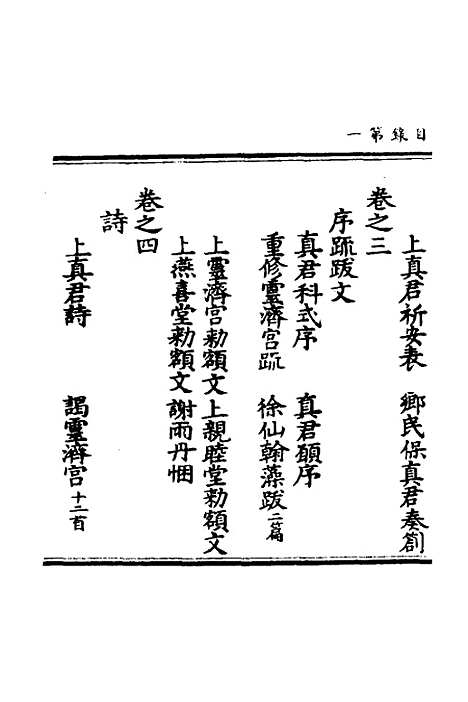 目錄第一
上真君祈安表　鄉民保真君奏劄
卷之三
序疏跋文
真君科式序　真君願序
重修靈濟宮疏　徐仙翰藻跋二篇
上靈濟宮勑額文上親睦堂勑額文
上燕喜堂勑額文　謝雨丹悃
卷之四
詩
上真君詩　謁靈濟宮十二首